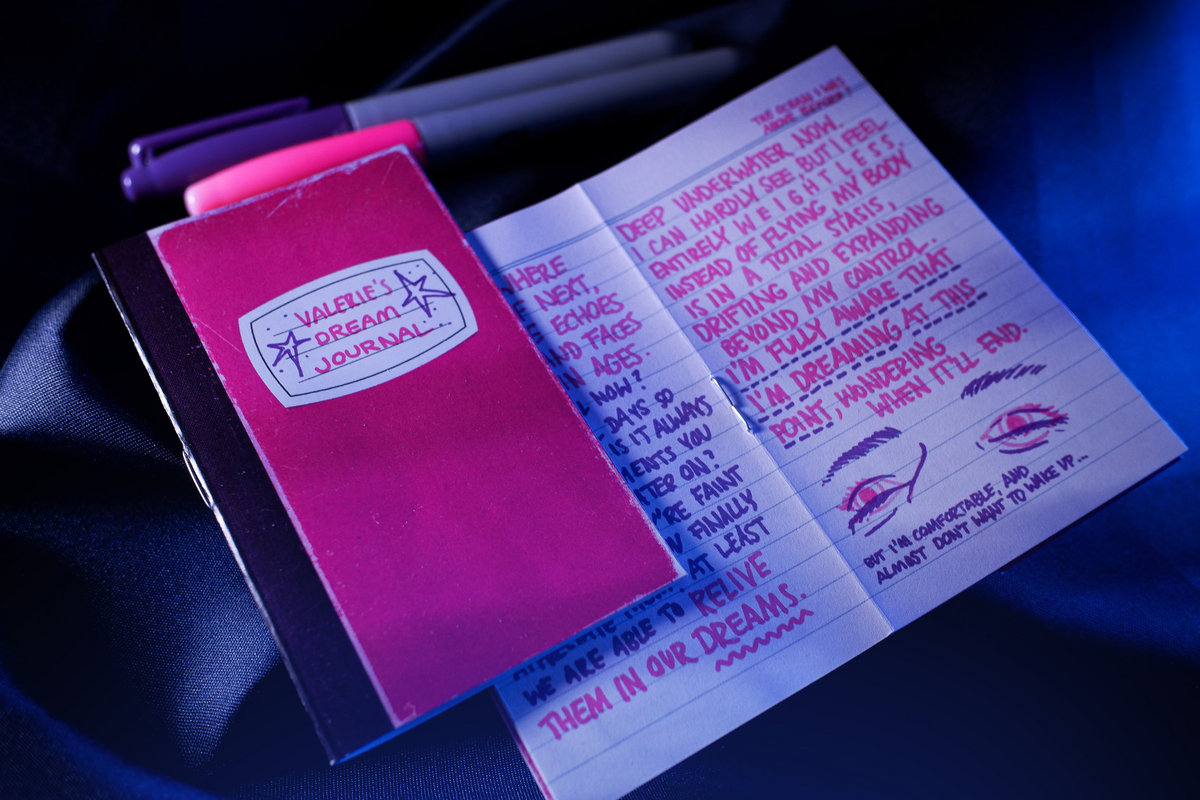 VALERIE'S
DREAM
JOURNAL
WHERE
NEXT,
ECHOES
AND FACES
IN AGES.
NOW?
DAYS SO
IS IT ALWAYS
YOU
ON?
FAINT
FINALLY
AT LEAST
WE ARE ABLE TO RELIVE
THEM IN OUR DREAMS.
THE OCEAN I WAS
ABOVE BEFORE?
DEEP UNDERWATER NOW.
I CAN HARDLY SEE BUT I FEEL
ENTIRELY W E I G H T L E S S.
INSTEAD OF FLYING MY BODY
IS IN A TOTAL STASIS,
DRIFTING AND EXPANDING
BEYOND MY CONTROL.
I'M FULLY AWARE THAT
I'M DREAMING AT THIS
POINT, WONDERING
WHEN IT'LL END.
BUT I'M COMFORTABLE, AND
ALMOST DON'T WANT TO WAKE UP...